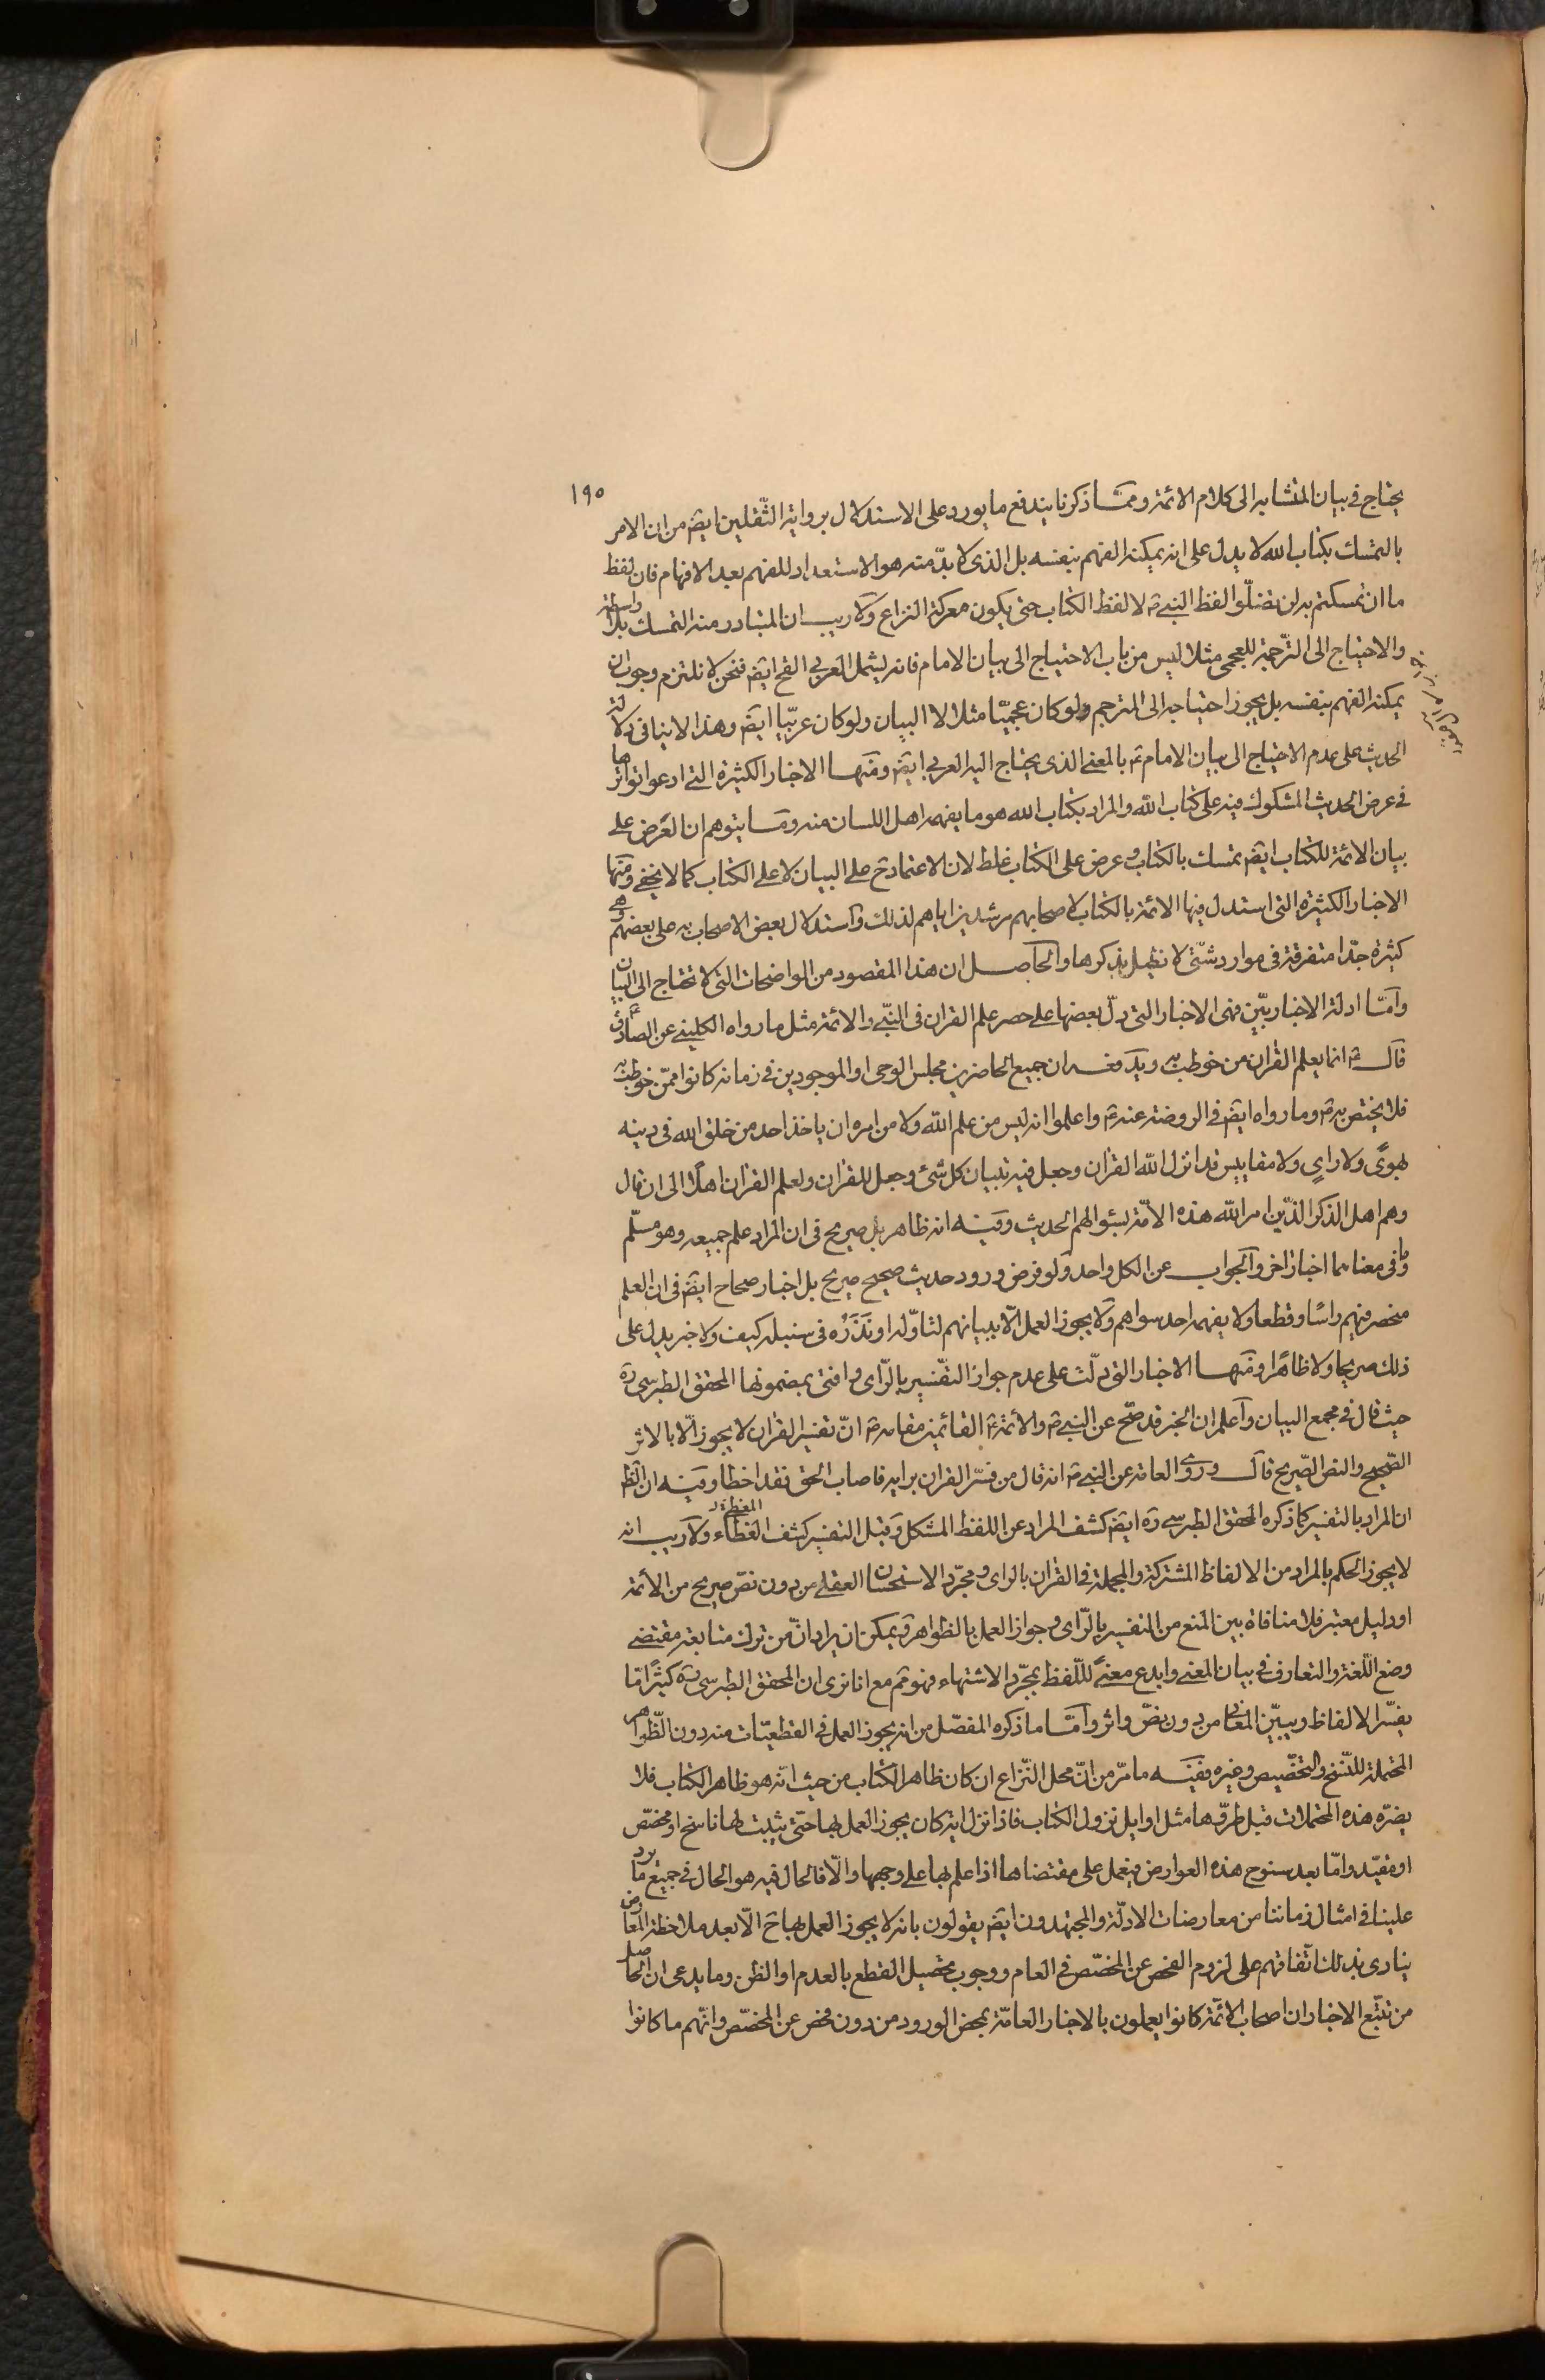 ١٩٥
يحتاج في بيان المتشابه الى كلام الائمة وممّا ذكرنا يندفع ما يورد على الاستدلال برواية الثّقلين ايضَ من ان الامر
بالتمسك بكتاب الله لا يدل على انه يمكنه الفهم بنفسه بل الذى لا بدّ منه هو الاستعداد للفهم بعد الافهام فان لفظ
ما ان تمسكتم به لن تضلّوا لفظ النبىّ ص لا لفظ الكتاب حتى يكون معركة النزاع ولا ريب ان المتبادر منه التمسك بلا واسطة
والاحتياج الى الترّجمة للعجمى مثلا ليس من باب الاحتياج الى بيان الامام فانه يشمل العربى القح ايضَ فنحن لا نلتزم وجوب ان
يمكنه الفهم بنفسه بل يجوز احتياجه الى المترجم ولو كان عجميّا مثلا لا البيان ولو كان عربيّا ايضَ وهذا لا ينافى دلالة
الحديث على عدم الاحتياج الى بيان الامام ع بالمعنى الذى يحتاج اليه العربى ايضَ ومنها الاخبار الكثيرة التى ادعوا تواترها
فى عرض الحديث المشكوك فيه على كتاب الله والمراد بكتاب الله هو ما يفهمه اهل اللسان منه وما يتوهم ان العرض على
بيان الائمة للكتاب ايضَ تمسك بالكتاب وعرض على الكتاب غلط لان الاعتماد ح على البيان لا على الكتاب كما لا يخفى ومنها
الاخبار الكثيرة التى استدل فيها الائمة بالكتاب لاصحابهم مرشدين اياهم لذلك واستدلال بعض الاصحاب به على بعضهم وهى
كثيرة جدّا متفرقة فى موارد شتّى لا نطيل بذكرها والحاصل ان هذا المقصود من الواضحات التى لا تحتاج الى البيان
وامّا ادلة الاخباريّين فهى الاخبار التى دلّ بعضها على حصر علم القران فى النبّى والائمة مثل ما رواه الكلينى عن الصادق ع
قال ع انما يعلم القران من خوطب به ويدفعه ان جميع الحاضرين مجلس الوحى او الموجودين فى زمانه كانوا ممّن خوطب به
فلا يختص به ع وما رواه ايضَ فى الروضة عنه ع واعلموا انه ليس من علم الله ولا من امره ان ياخذ احد من خلق الله فى دينه
بهوىً ولا راىٍ ولا مقاييس قد انزل الله القران وجعل فيه تبيان كل شئ وجعل للقران ولعلم القران اهلاً الى ان قال
وهم اهل الذكر الذّين امر الله هذه الامّة بسئوالهم الحديث وفيه انه ظاهر بل صريح فى ان المراد علم جميعه وهو مسلّم
وما فى معناهما اخبار اخر والجواب عن الكل واحد ولو فرض ورود حديث صحيح صريح بل اخبار صحاح ايضَ فى ان العلم
منحصر فيهم راسًا وقطعا ولا يفهمه احد سواهم ولا يجوز العمل الّا ببيانهم لتاوّله او نَذَرُه فى سنبله كيف ولا خبر يدل على
ذلك صريحا ولا ظاهرا ومنها الاخبار التى دلّت على عدم جواز التفّسير بالرّاى وافتى بمضمونها المحقق الطبرسى ره
حيث قال فى مجمع البيان واعلم ان الخبر قد صّح عن النبى ص والائمة ع القائمين مقامه ص انّ تفسير القران لا يجوز الّا بالاثر
الصّحيح والنص الصّريح قال وروى العامة عن النبى ص انه قال من فسّر القران برايه فاصاب الحق فقد اخطا وفيه ان الظ
ان المراد بالتفسير كما ذكره المحقق الطبرسى ره ايضَ كشف المراد عن اللفظ المشكل وقيل التفسير كشف الغطاء ولا ريب انه
المغطى
لا يجوز الحكم بالمراد من الالفاظ المشتركة والمجملة فى القران بالراى ومجرّد الاستحسان العقلى من دون نصّ صريح من الائمة
او دليل معتبر فلا منافاة بين المنع من التفسير بالرّاى وجواز العمل بالظواهر ويمكن ان يراد انّ من ترك متابعة مقتضى
وضع اللّغة والتعارف فى بيان المعنى وابدع معنىً للّفظ بمجرّد الاشتهاء فهو ثم مع انا نرى ان المحقق الطبرسى ره كثيرًا مّا
يفسّر الالفاظ ويبيّن المعانى من دون نصّ واثر وامّا ما ذكره المفصّل من انه يجوز العمل فى القطعيّات منه دون الظّواهر
المحتملة للنّسخ والتخصّيص وغيره ففيه ما مرّ من انّ محل النّزاع ان كان ظاهر الكتاب من حيث انّه هو ظاهر الكتاب فلا
يضرّه هذه المحتملات قبل طروّها مثل اوايل نزول الكتاب فاذا نزل اية كان يجوز العمل بها حتى يثبت لها ناسخ او مخصّص
او مقيّد وامّا بعد سنوح هذه العوارض فيعمل على مقتضاها اذا علم بها على وجهها والّا فالحال فيه هو الحال فى جميع ما يرد
علينا فى امثال زماننا من معارضات الادلّة والمجتهدون ايضَ يقولون بانه لا يجوز العمل بها ح الّا بعد ملاحظة المعارض
ينادى بذلك اتّفاقهم على لزوم الفحص عن المخصّص فى العام ووجوب تحصيل القطع بالعدم او الظن وما يدعى ان الحاصل
من تتبّع الاخبار ان اصحاب الائمّة كانوا يعملون بالاخبار العامّة بمحض الورود من دون فحص عن المخصّص وانّهم ما كانوا